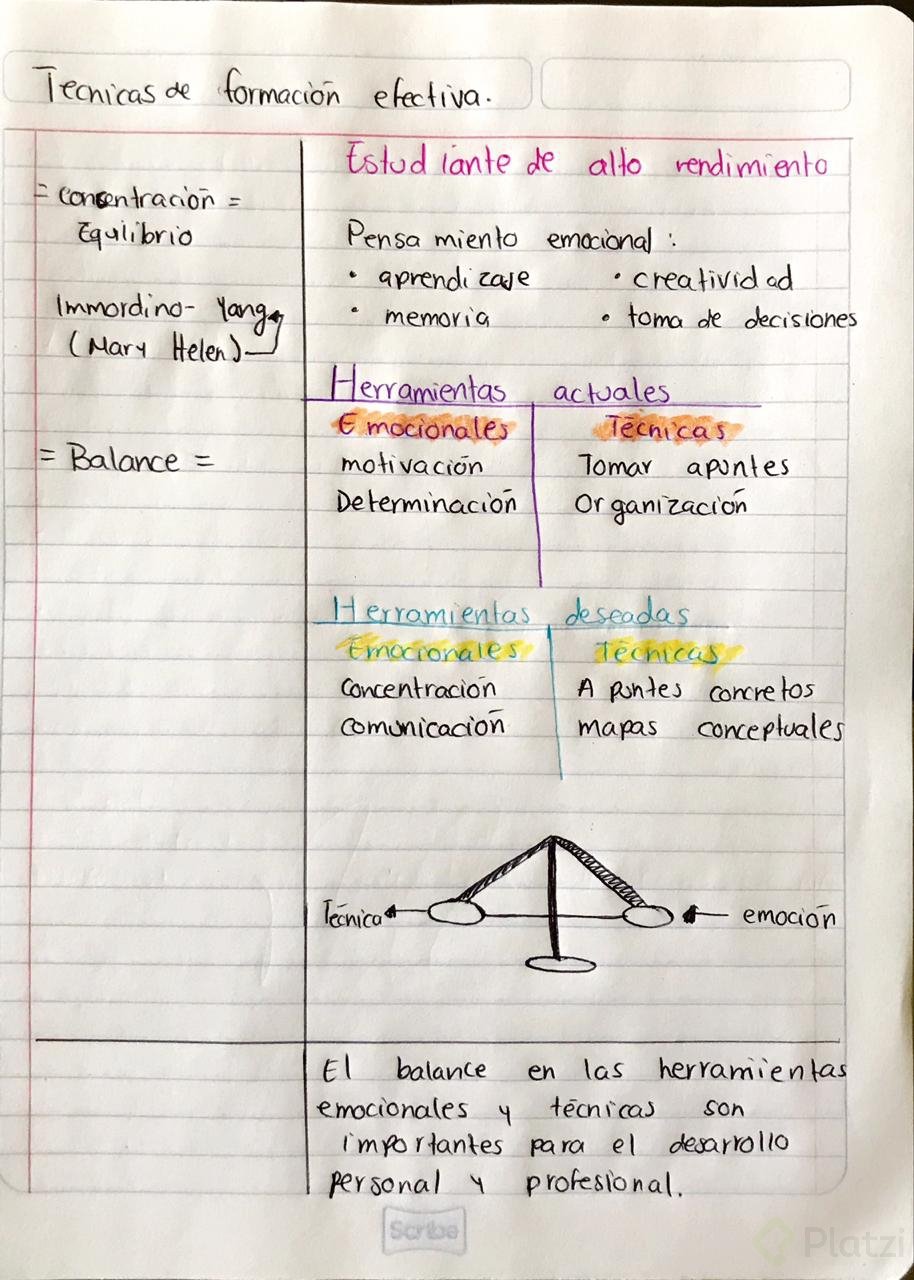 Tecnicas de formación efectiva.
= Concentración =
Equilibrio
Immordino- Yang
(Mary Helen)
= Balance =
Estudiante de alto rendimiento
Pensamiento emocional :
• aprendizaje • creatividad
• memoria • toma de decisiones
Herramientas actuales
Emocionales Técnicas
motivación Tomar apuntes
Determinación Organización
Herramientas deseadas
Emocionales Técnicas
Concentración Apuntes concretos
comunicación mapas conceptuales
Técnica emoción
El balance en las herramientas
emocionales y técnicas son
importantes para el desarrollo
personal y profesional.
Scribe
Platzi